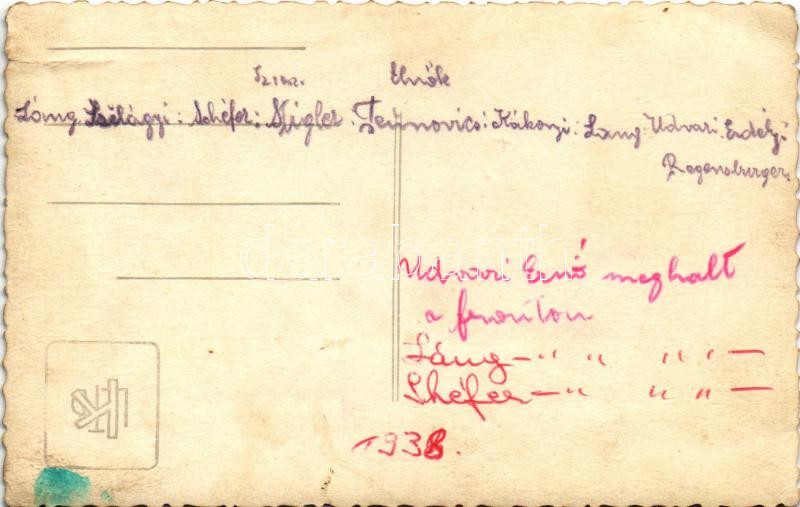 Elnök
Láng Szilágyi: Schéfer: Stigler: Kákonyi: Láng: Udvari Erdélyi
Regensburger
Udvari Ernő meghalt
a fronton
Láng - " " " " -
Shéfer - " " " -
1938.